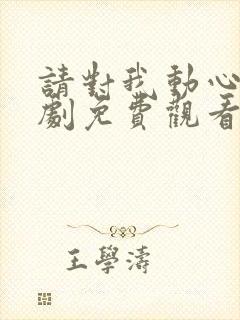 請對我動心
劇免費觀看
王學濤